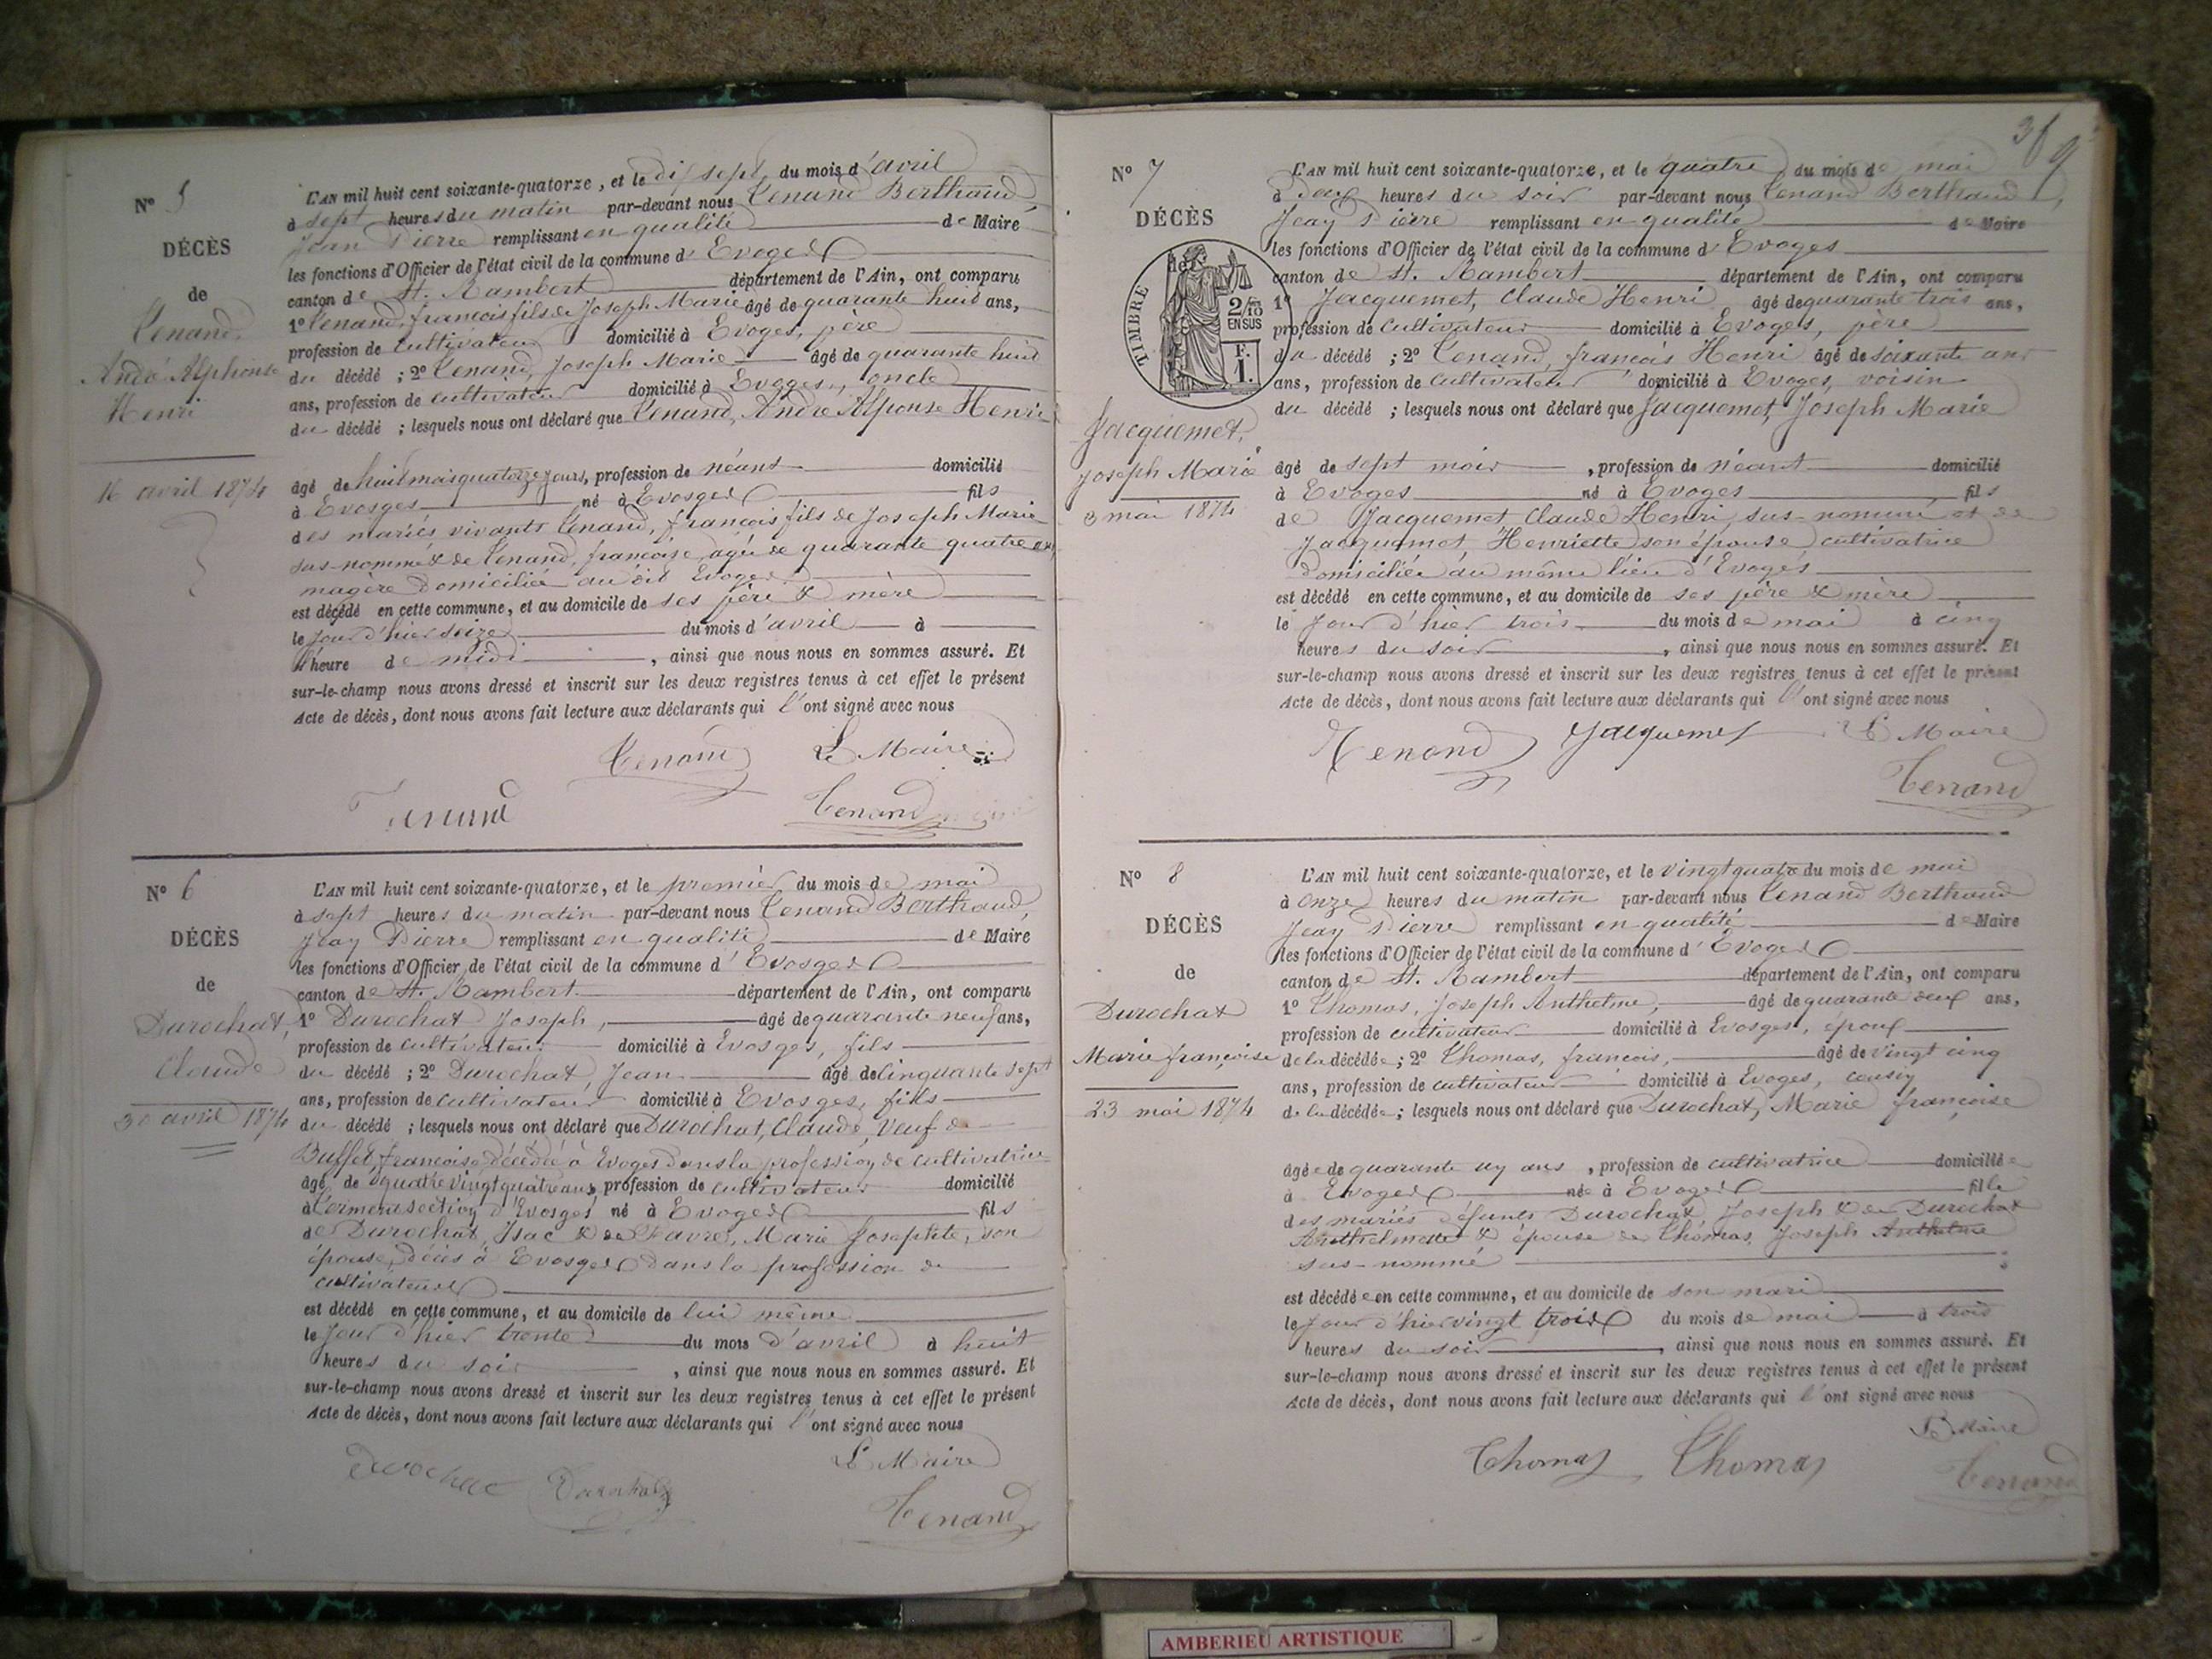 N° 5
DÉCÈS
de
Tenand,
André Alphonse
Henri
16 avril 1874
L'AN mil huit cent soixante-quatorze, et le dix sept du mois d'avril
à sept heures du matin par-devant nous Tenand Berthaud,
Jean Pierre remplissant en qualité de Maire
les fonctions d'Officier de l'état civil de la commune d'Evoges
canton de St. Rambert département de l'Ain, ont comparu
1° Tenand, françois fils de Joseph Marie âgé de quarante huit ans,
profession de cultivateur domicilié à Evoges, père
du décédé ; 2° Tenand, Joseph Marie âgé de quarante huit
ans, profession de cultivateur domicilié à Evoges, oncle
du décédé ; lesquels nous ont déclaré que Tenand, André Alponse Henri
âgé de huit mois quatorze jours, profession de néant domicilié
à Evosges né à Evosges fils
des mariés vivants Tenand, françois fils de Joseph Marie
sus-nommé & de Tenand, françoise, agée de quarante quatre ans,
magère domiciliée au dit Evoges
est décédé en cette commune, et au domicile de ses père & mère
le jour d'hier seize du mois d'avril à
l'heure de midi, ainsi que nous nous en sommes assuré. Et
sur-le-champ nous avons dressé et inscrit sur les deux registres tenus à cet effet le présent
Acte de décès, dont nous avons fait lecture aux déclarants qui l'ont signé avec nous
Tenand Le Maire
Tenand Tenand
N° 6
DÉCÈS
de
Durochat,
Claude
30 avril 1874
L'AN mil huit cent soixante-quatorze, et le premier du mois de mai
à sept heures du matin par-devant nous Tenand Berthaud,
Jean Pierre remplissant en qualité de Maire
les fonctions d'Officier de l'état civil de la commune d'Evosges
canton de St. Rambert département de l'Ain, ont comparu
1° Durochat Joseph, âgé de quarante neuf ans,
profession de cultivateur domicilié à Evosges, fils
du décédé ; 2° Durochat, Jean âgé de cinquante sept
ans, profession de cultivateur domicilié à Evosges, fils
du décédé ; lesquels nous ont déclaré que Durochat, Claude, Veuf de
Buffet, françoise, décédée à Evoges dans la profession de cultivatrice
âgé de quatre vingt quatre ans, profession de cultivateur domicilié
à section d'Evosges né à Evoges fils
de Durochat, Isac & de Favre, Marie Josephte, son
épouse, décés à Evosges dans la profession de
cultivateurs
est décédé en cette commune, et au domicile de lui même
le jour d'hier trente du mois d'avril à huit
heures du soir, ainsi que nous nous en sommes assuré. Et
sur-le-champ nous avons dressé et inscrit sur les deux registres tenus à cet effet le présent
Acte de décès, dont nous avons fait lecture aux déclarants qui l'ont signé avec nous
Durochat Durochat Le Maire
Tenand
N° 7
DÉCÈS
de
TIMBRE
2/10
EN SUS
F.
1.
Jacquemet,
Joseph Marie
3 mai 1874
L'AN mil huit cent soixante-quatorze, et le quatre du mois de mai
à deux heures du soir par-devant nous Tenand Berthaud,
Jean Pierre remplissant en qualité de Maire
les fonctions d'Officier de l'état civil de la commune d'Evoges
canton de St. Rambert département de l'Ain, ont comparu
1° Jacquemet, Claude Henri âgé de quarante trois ans,
profession de cultivateur domicilié à Evoges, père
du décédé ; 2° Tenand, françois Henri âgé de soixante ans
ans, profession de cultivateur domicilié à Evoges, voisin
du décédé ; lesquels nous ont déclaré que Jacquemet, Joseph Marie
âgé de sept mois, profession de néant domicilié
à Evoges né à Evoges fils
de Jacquemet Claude Henri, sus-nommé et de
Jacquemet, Henriette son épouse cultivatrice
domiciliée au même lieu d'Evoges
est décédé en cette commune, et au domicile de ses père & mère
le jour d'hier trois du mois de mai à cinq
heures du soir, ainsi que nous nous en sommes assuré. Et
sur-le-champ nous avons dressé et inscrit sur les deux registres tenus à cet effet le présent
Acte de décès, dont nous avons fait lecture aux déclarants qui l'ont signé avec nous
Tenand Jacquemet Le Maire
Tenand
N° 8
DÉCÈS
de
Durochat
Marie françoise
23 mai 1874
L'AN mil huit cent soixante-quatorze, et le vingt quatre du mois de mai
à onze heures du matin par-devant nous Tenand Berthaud
Jean Pierre remplissant en qualité de Maire
les fonctions d'Officier de l'état civil de la commune d'Evoges
canton de St. Rambert département de l'Ain, ont comparu
1° Thomas, Joseph Anthelme, âgé de quarante deux ans,
profession de cultivateur domicilié à Evosges, époux
de la décédée ; 2° Thomas, françois, âgé de vingt cinq
ans, profession de cultivateur domicilié à Evoges, cousin
de la décédée ; lesquels nous ont déclaré que Durochat, Marie françoise
âgée de quarante un ans, profession de cultivatrice domiciliée
à Evoges née à Evoges fille
des mariés défunts Durochat, Joseph & de Durochat
Anthelmette & épouse de Thomas, Joseph Anthelme
sus-nommé
est décédée en cette commune, et au domicile de son mari
le jour d'hier vingt trois du mois de mai à trois
heures du soir, ainsi que nous nous en sommes assuré. Et
sur-le-champ nous avons dressé et inscrit sur les deux registres tenus à cet effet le présent
Acte de décès, dont nous avons fait lecture aux déclarants qui l'ont signé avec nous
Thomas Thomas Le Maire
Tenand
AMBERIEU ARTISTIQUE